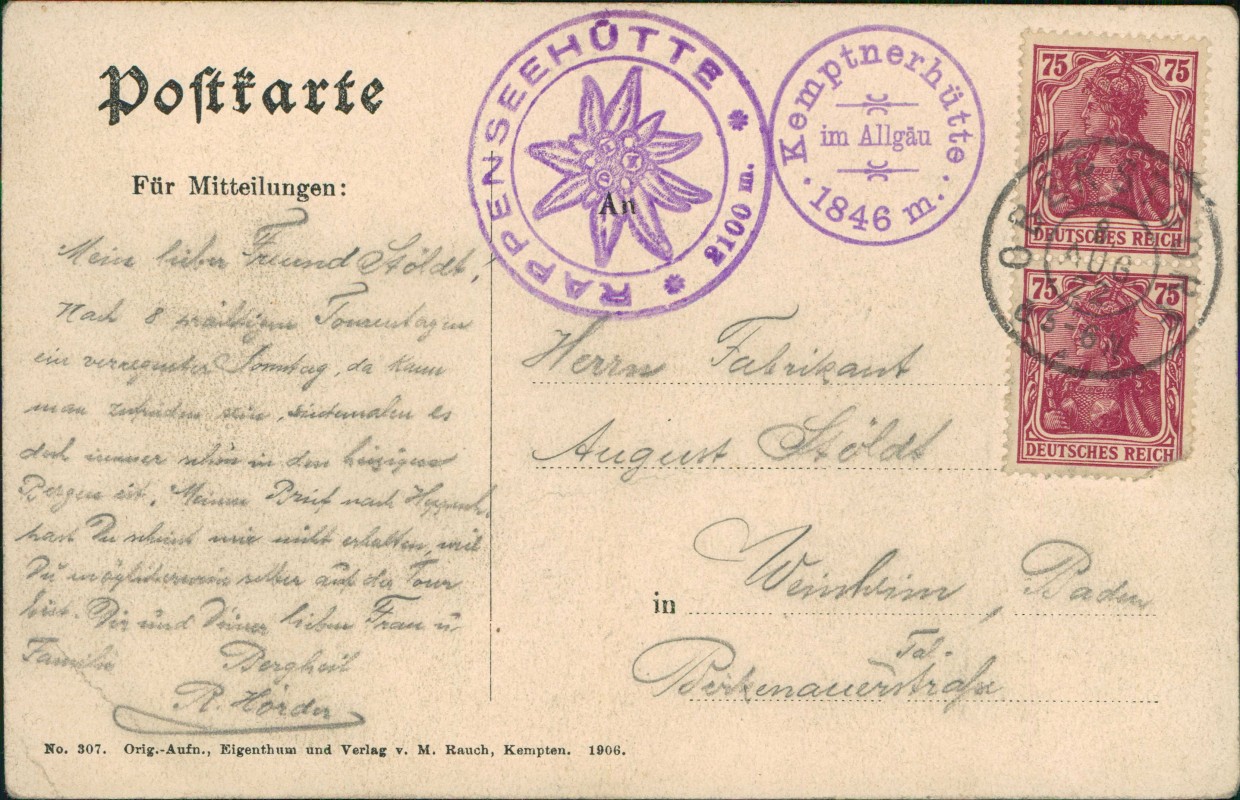 Postkarte
Für Mitteilungen:
Mein lieber Freund Stöldt,
Nach 8 prächtigen Tourentagen
ein verregneter Sonntag, da kann
man zufrieden sein, sintemalen es
doch immer schön in den hiesigen
Bergen ist. Meinen Brief nach
hast Du scheint mir nicht erhalten, weil
Du möglicherweise selber auf die Tour
bist. Dir und Deiner lieben Frau u
Familie Bergheil
R. Hörder
No. 307. Orig.-Aufn., Eigenthum und Verlag v. M. Rauch, Kempten. 1906.
RAPPENSEEHÜTTE
2100 m.
Kemptnerhütte
im Allgäu
1846 m.
An
Herrn Fabrikant
August Stöldt
in Weinheim, Baden
Tal-
Birkenauerstraße
75 75
DEUTSCHES REICH
75 75
DEUTSCHES REICH
AUG